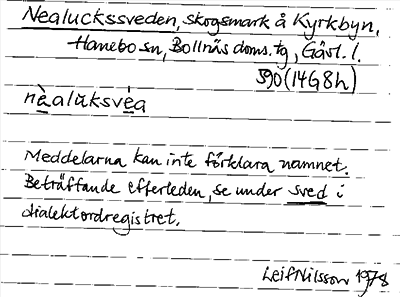 Nealuckssveden, skogsmark å Kyrkbyn,
Hanebo sn, Bollnäs doms. tg, Gävl. l.
590 (14G8h)
nèaluksvéa
Meddelarna kan inte förklara namnet.
Beträffande efterleden, se under sved i
dialektordregistret.
Leif Nilsson 1978